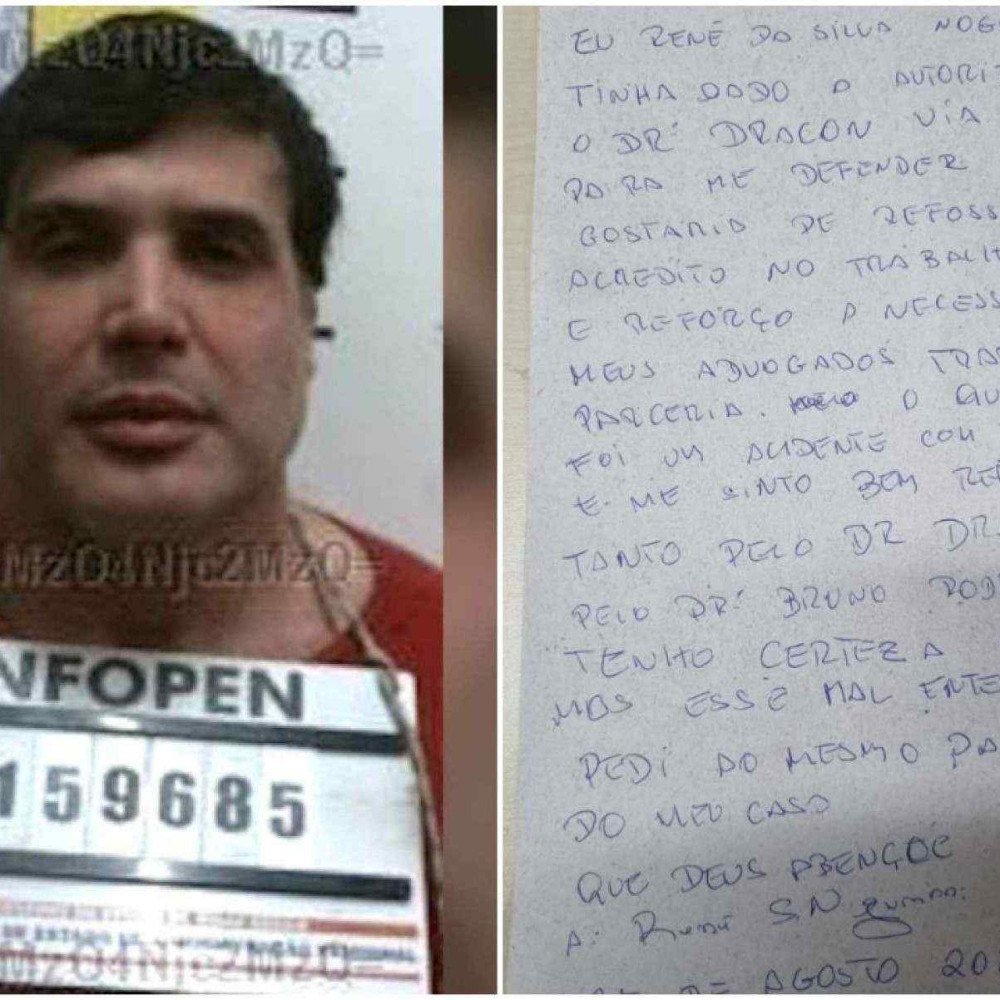 MzQ4Njc2MzQ=
MzQ4Njc2MzQ=
NFOPEN
159685
MzQ4Njc2MzQ=
EU RENÉ DO SILVA NOG
TINHA DADO A AUTORIT
O DR: DRACON VIA
PARA ME DEFENDER
GOSTARIA DE REFOSS
ACREDITO NO TRABALH
E REFORÇO A NECESS
MEUS ADVOGADOS TRA
PARCERIA. O QU
FOI UM ACIDENTE COM
E. ME SINTO BEM REP
TANTO PELO DR DR
PELO DR: BRUNO ROD
TENHO CERTEZA
MAS ESSE MAL ENTE
PEDI AO MESMO PA
DO MEU CASO
QUE DEUS ABENÇOE
A: René S.N
DE AGOSTO 20